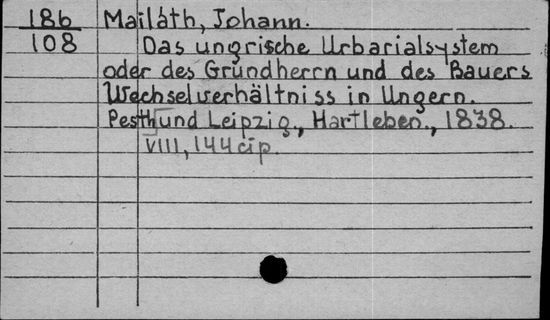 186 Mailáth, Johann.
108 Das ungrische Urbarialsystem
oder des Grundherrn und des Bauers
Wechselverhältniss in Ungern.
Pesth und Leipzig., Hartleben., 1838.
VIII, 144 cip.